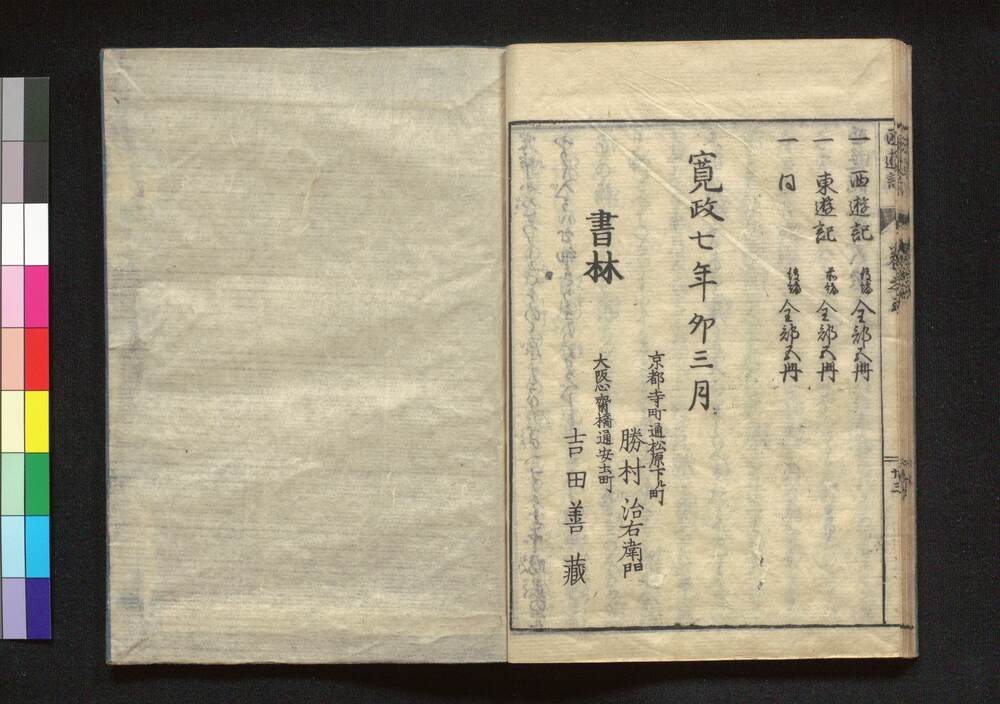 一 西遊記 後編 全部五冊
一 東遊記 前編 全部五冊
一 同 後編 全部五冊
寛政七年卯三月
京都寺町通松原下ル町
勝村治右衛門
書林
大阪心齋橋通安土町
吉田善藏
西遊記
十三